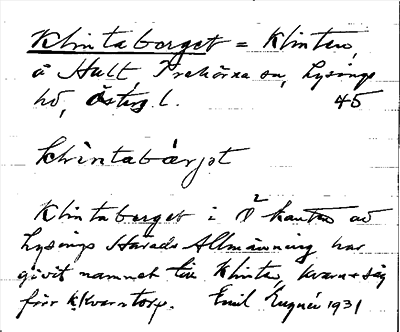 Klintaberget = Klinten,
å Hult, Trehörna sn, Lysings
hd, Östergl. 45
klìntabærjət
Klintaberget i Ö kanten av
Lysings Härads Allmänning har
givit namnet till Klinta, kvarn + såg
för Kvarntorp. Emil 1931